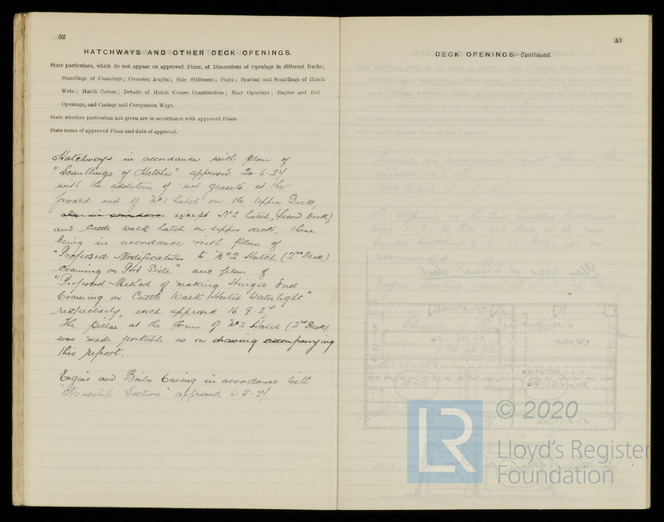 52
HATCHWAYS AND OTHER DECK OPENINGS.
State particulars, which do not appear on approved Plans, of Dimensions of Openings in different Decks;
Scantlings of Coamings; Coaming Angles; Side Stiffeners; Stays; Spacing and Scantlings of Hatch
Webs; Hatch Covers; Details of Hatch Corner Construction; Mast Openings; Engine and Boiler
Openings, and Casings and Companion Ways.
State whether particulars not given are in accordance with approved Plans.
State names of approved Plans and date of approval.
Hatchways in accordance with plan of
"Scantlings of Hatches" approved 20-6-24
with the addition of gussets at the
forward end of No1 hatch on the Upper Deck,
except No2 hatch, (Second Deck)
and Cattle walk hatch on upper deck, these
being in accordance with plan of
"Proposed Modification to No2 Hatch (2nd Deck)
Coaming on Port Side" and plan of
"Proposed Method of making Hinged End
Coaming on Cattle Walk Hatch Watertight"
respectively, each approved 16-9-24
The pillar at the corner of No2 Hatch (2nd Deck)
was made portable as on drawing accompanying
this report.
Engine and Boiler Casing in accordance with
"Midship Section" approved 6-5-24.
53
DECK OPENINGS—Continued.
LR
© 2020
Lloyd's Register
Foundation